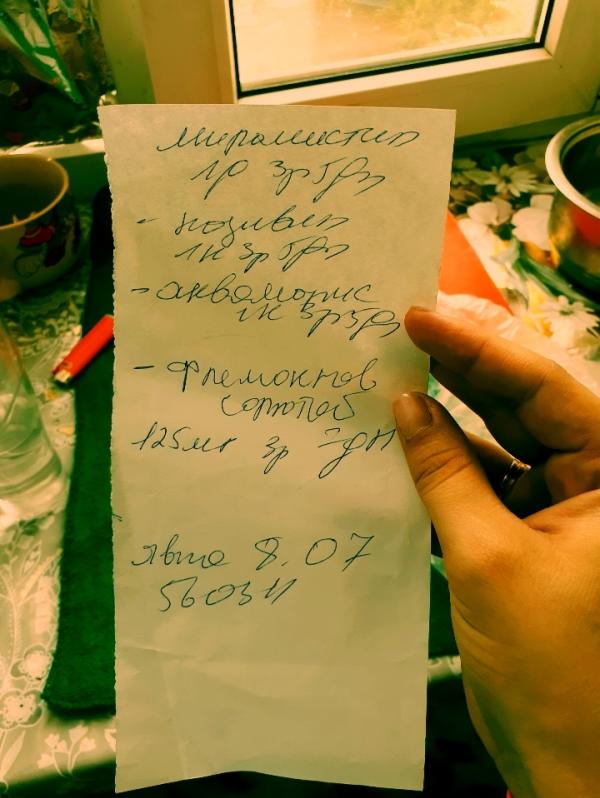 мирамистин
1р 3р 5дн
- називин
1к 3р 5дн
- аквамарис
1к 3р 5дн
- Флемокснов
солютаб
125мг 3р 7дн
явка 8.07
560311